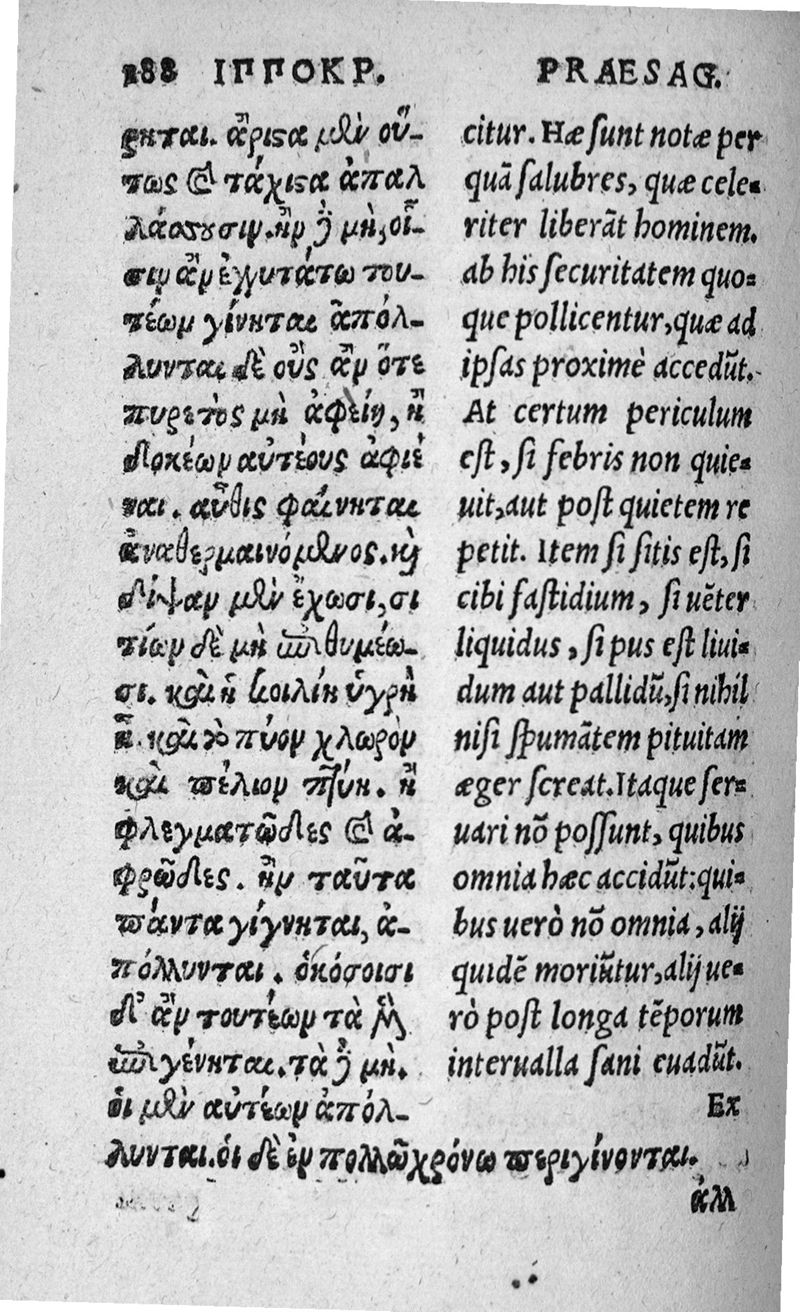 288 ΙΠΠΟΚΡ.
ρηται. ἄριστα μὲν οὕ-
τως καὶ τάχιστα ἀπαλ
λάσσουσιν. ἢν δὲ μὴ, οἷ-
σιν ἂν ἐγγυτάτω του-
τέων γίνηται ἀπόλ-
λυνται δὲ οὓς ἂν ὅτε
πυρετὸς μὴ ἀφείη, ἢ
δοκέων αὐτέους ἀφιέ
ναι. αὖθις φαίνηται
ἀναθερμαινόμενος. καὶ
δίψαν μὲν ἔχωσι, σι
τίων δὲ μὴ ἐπιθυμέω-
σι. καὶ ἡ κοιλίη ὑγρὴ
ᾖ. καὶ τὸ πύον χλωρὸν
καὶ πέλιον πτύη. ἢ
φλεγματῶδες καὶ ἀ-
φρῶδες. ἢν ταῦτα
πάντα γίγνηται, ἀ-
πόλλυνται. ὁκόσοισι
δ' ἂν τουτέων τὰ μὲν
ἐπιγένηται. τὰ δὲ μὴ.
οἱ μὲν αὐτέων ἀπόλ-
λυνται. οἱ δὲ ἐν πολλῶ χρόνω περιγίνονται.
ἀλλ
PRAESAG.
citur. Hæ sunt notæ per
quã salubres, quæ cele-
riter liberãt hominem.
ab his securitatem quo-
que pollicentur, quæ ad
ipsas proximè accedũt.
At certum periculum
est, si febris non quie-
uit, aut post quietem re
petit. Item si sitis est, si
cibi fastidium, si uẽter
liquidus, si pus est liui-
dum aut pallidũ, si nihil
nisi spumãtem pituitam
æger screat. Itaque ser-
uari nõ possunt, quibus
omnia hæc accidũt: qui-
bus uerò nõ omnia, alij
quidẽ moriũtur, alij ue-
rò post longa tẽporum
interualla sani euadũt.
Ex